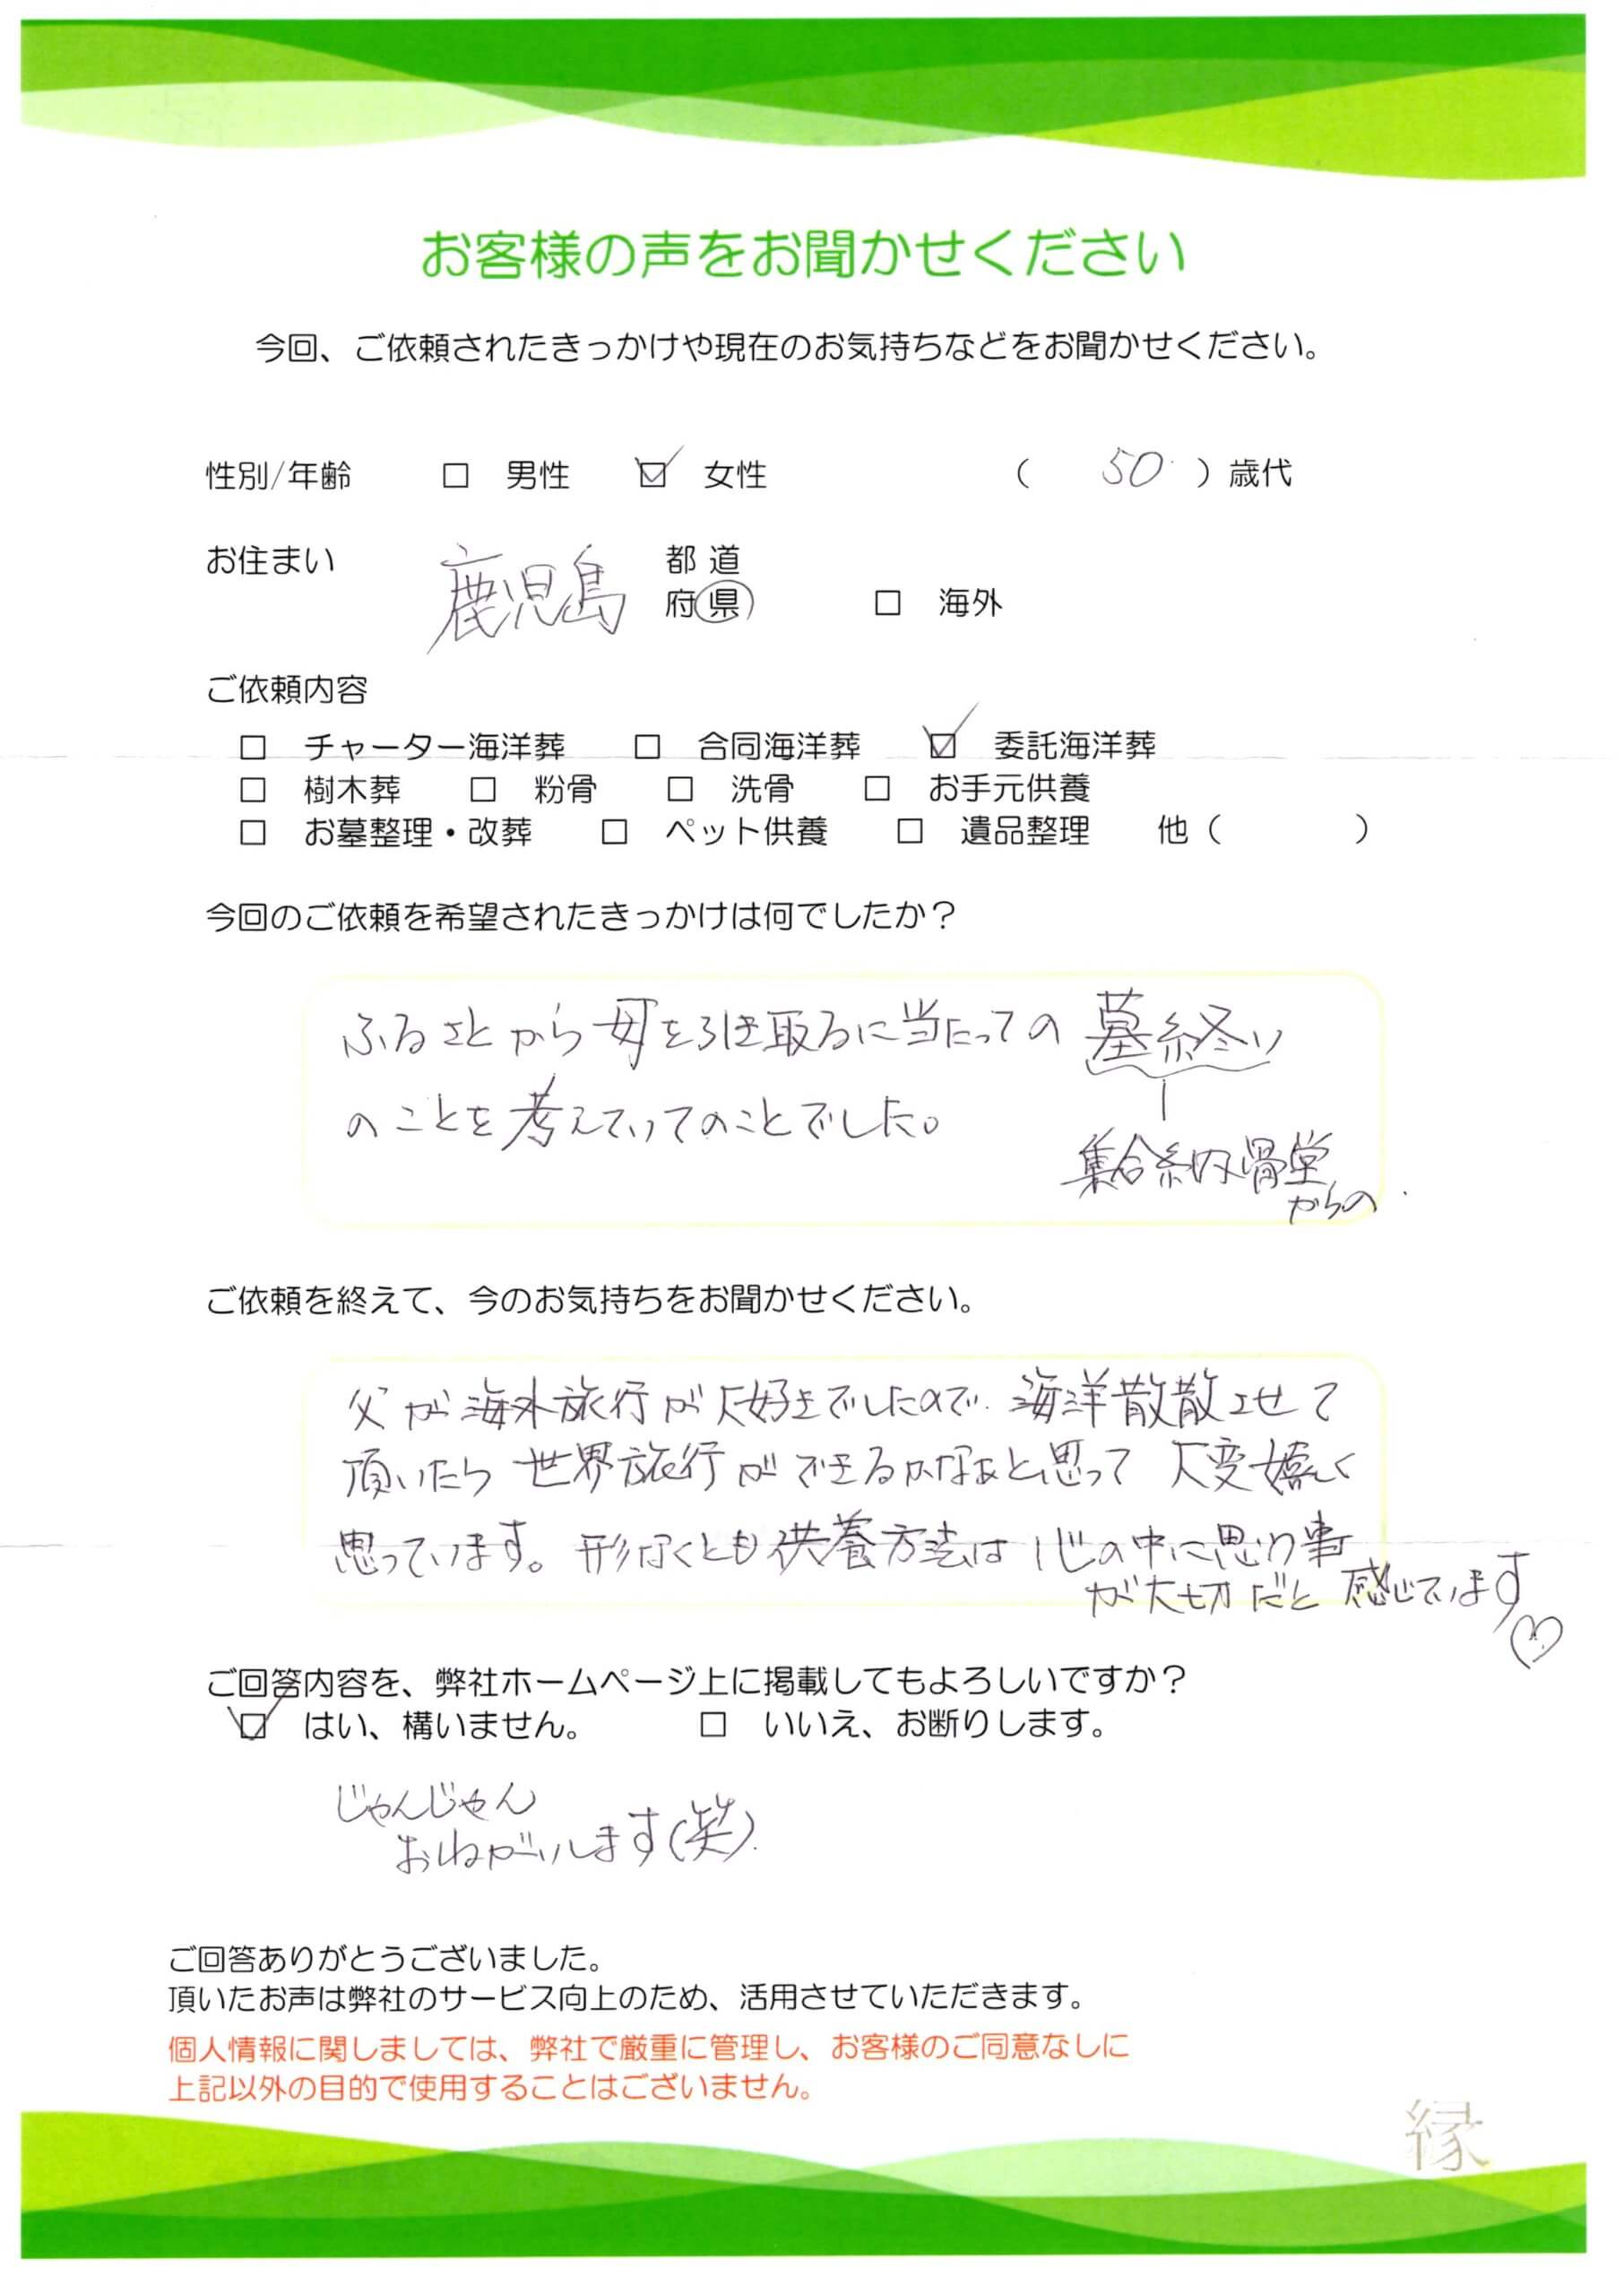 お客様の声をお聞かせください
今回、ご依頼されたきっかけや現在のお気持ちなどをお聞かせください。
性別/年齢 □ 男性 ☑ 女性 ( 50 ) 歳代
お住まい 鹿児島 都 道
府 県 □ 海外
ご依頼内容
□ チャーター海洋葬 □ 合同海洋葬 ☑ 委託海洋葬
□ 樹木葬 □ 粉骨 □ 洗骨 □ お手元供養
□ お墓整理・改葬 □ ペット供養 □ 遺品整理 他 ( )
今回のご依頼を希望されたきっかけは何でしたか？
ふるさとから母を引き取るに当たっての 墓終い
のことを考えていてのことでした。
集合納骨堂
からの
ご依頼を終えて、今のお気持ちをお聞かせください。
父が海外旅行が大好きでしたので、海洋散散させて
頂いたら 世界旅行ができるかなぁと思って 大変嬉しく
思っています。形なくとも供養方法は心の中に思う事
が大切だと感じています♡
ご回答内容を、弊社ホームページ上に掲載してもよろしいですか？
☑ はい、構いません。 □ いいえ、お断りします。
じゃんじゃん
おねがいします(笑).
ご回答ありがとうございました。
頂いたお声は弊社のサービス向上のため、活用させていただきます。
個人情報に関しましては、弊社で厳重に管理し、お客様のご同意なしに
上記以外の目的で使用することはございません。
縁